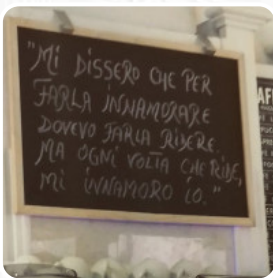 "Mi DISSERO CHE PER
FARLA iNNAMORARE
DOVEVO FARLA RIDERE.
MA OGNi VOLTA CHE RIDE,
Mi iNNAMORO iO."